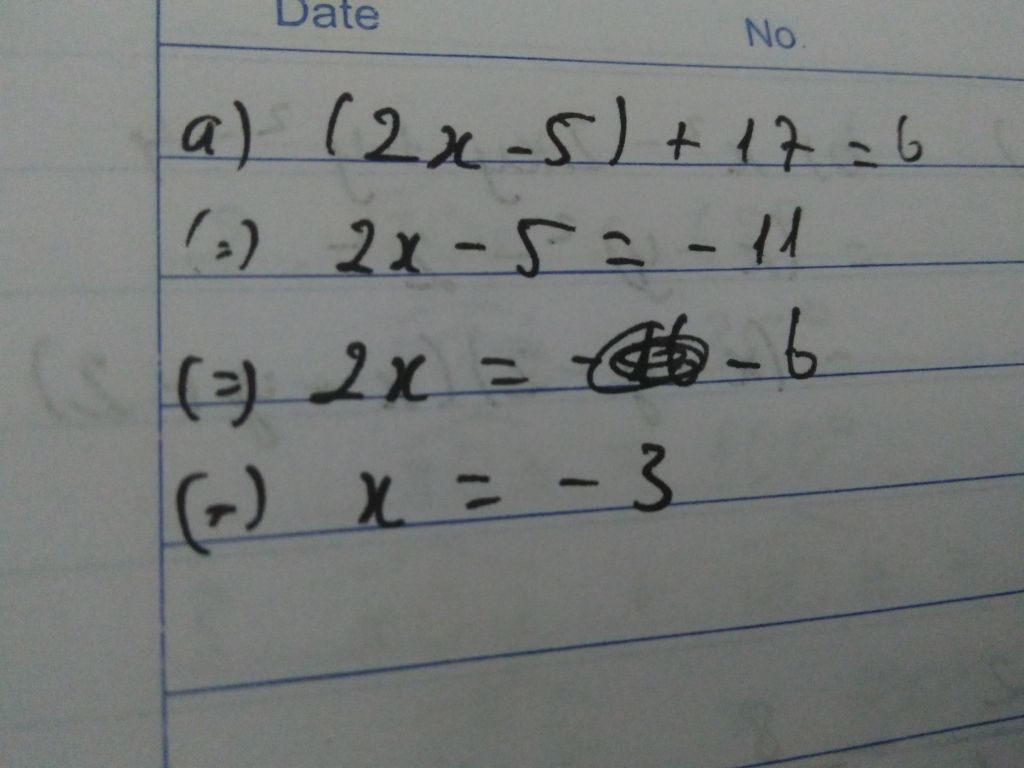 Date No.
a) (2x - 5) + 17 = 6
(=) 2x - 5 = - 11
(=) 2x = - 6
(=) x = - 3